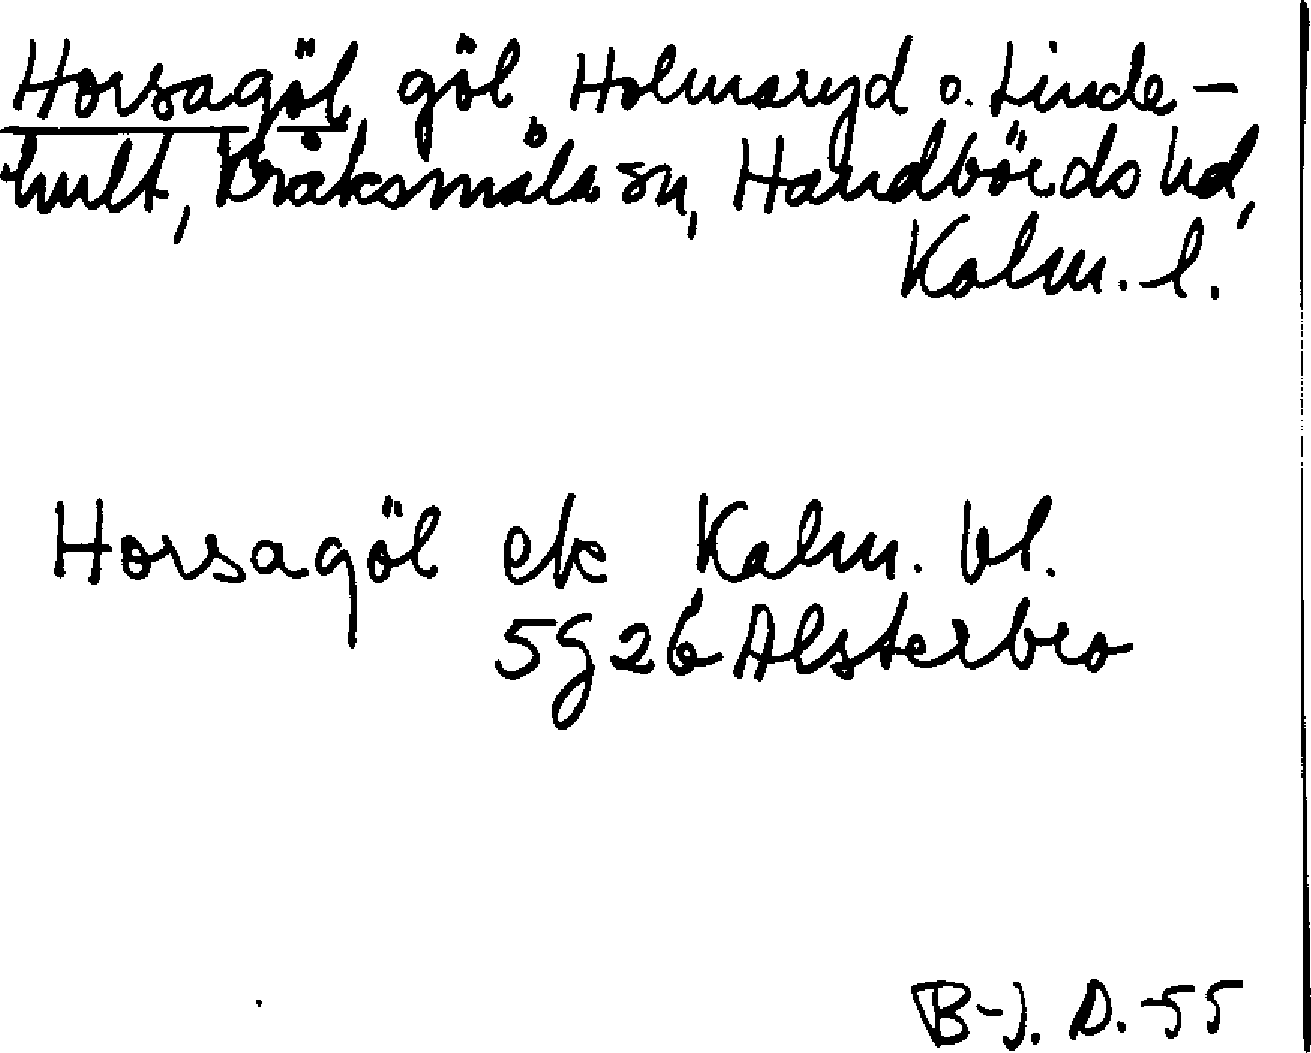 Horsagöl, göl, Holmaryd o. Linde-
hult, Kråksmåla sn, Handbörds hd,
Kalm. l.
Horsagöl ek Kalm. bl.
5g26 Alsterbro
B-J. D.-55